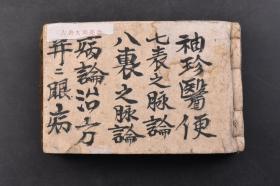 袖珍醫便
七表之脉論
八裏之脉論
病論治方
并ニ眼病